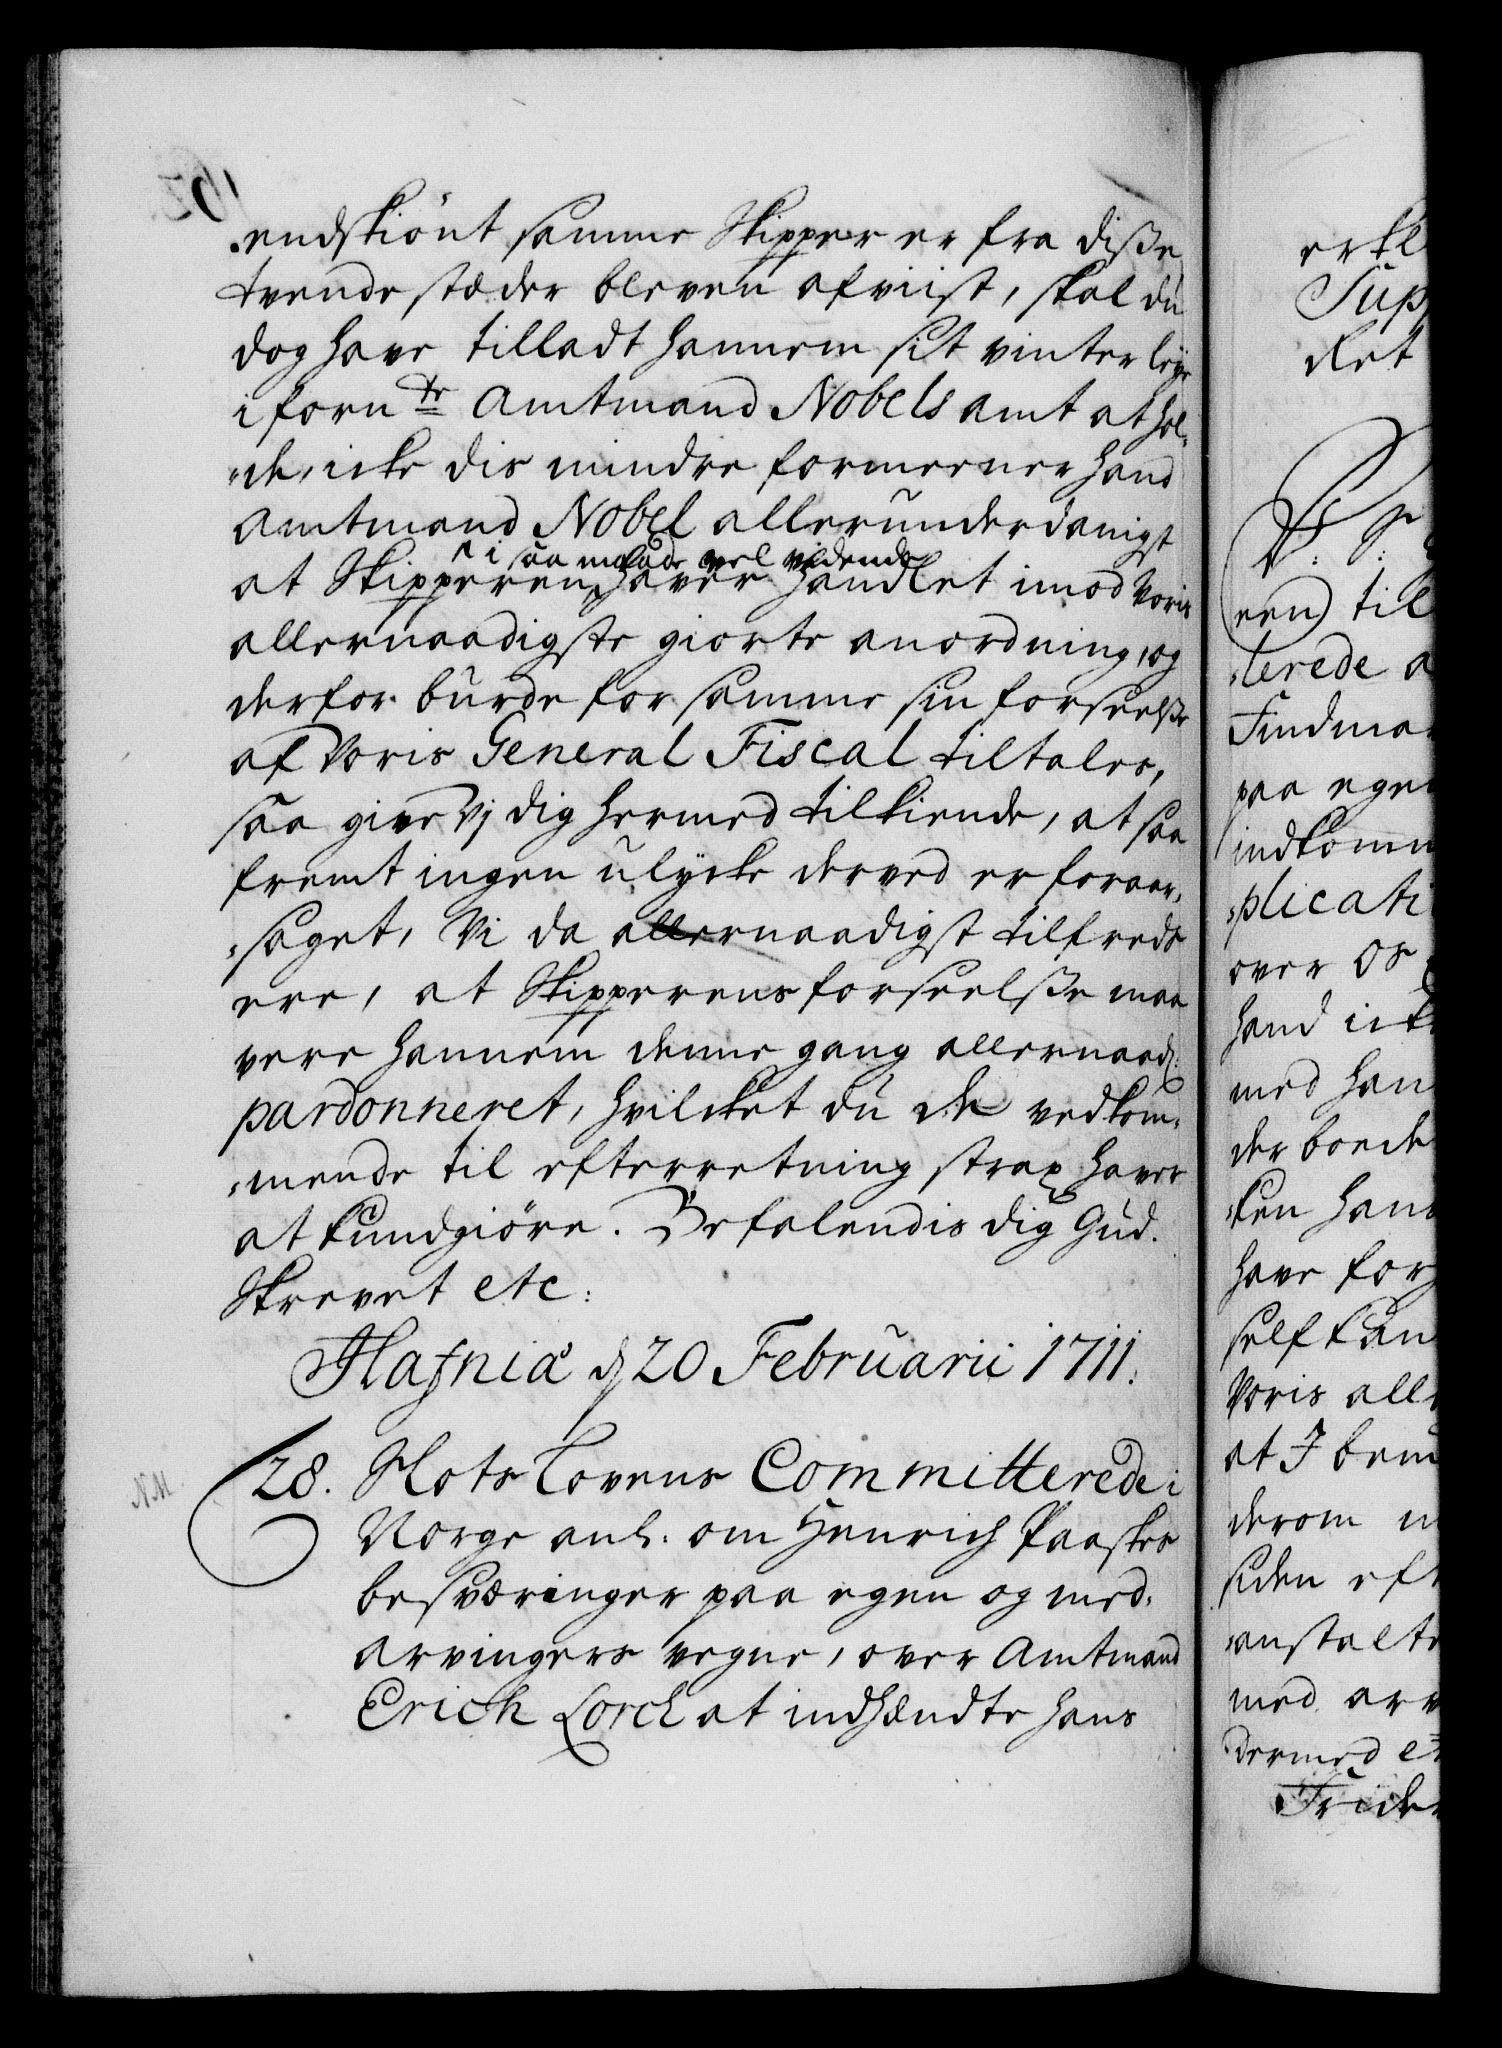 endskiönt samme Skipper er fra disse
tvende stæder bleven afviist, skal du
dog have tilladt hannem sit vinter leye
i forn:te Amtmand Nobels amt at hol-
-de, icke dis mindre formeener hand
Amtmand Nobel allerunderdanigst
i saa maade vel vidende
at Skipperen haver handlet imod Voris
allernaadigste giorte anordning, og
derfor burde for samme sin forseelse
af Voris General Fiscal tiltales,
saa give Vj dig hermed tilkiende, at saa
fremt ingen ulycke derved er foraar,
,saget, Vi da allernaadigst tilfreds
ere, at Skipperens forseelsse maa
være hannem denne gang allernaad:
pardonneret, hvilcket du de vedkom,
,mende til efterretning strax haver
at kundgiöre. Befalendis dig Gud.
Skrevet etc:
Hafniæ d 20 Februarii 1711.
NM
28. Slots Lovens Committerede i
Norge anl: om Henrich Paaskes
besværinger paa egen og med,
arvingers vegne, over Amtmand
Erich Lorch at indhændte hans
erkl
Sup
Ret
een) til
,lerede a
Findmar
paa egen
indkomm
,plicati
over os
hand ick
med han
der boede
,ken hans
have for
self kun
Voris all
at I bem
derom
siden eft
anstalte
med arv
dermed et
Frider